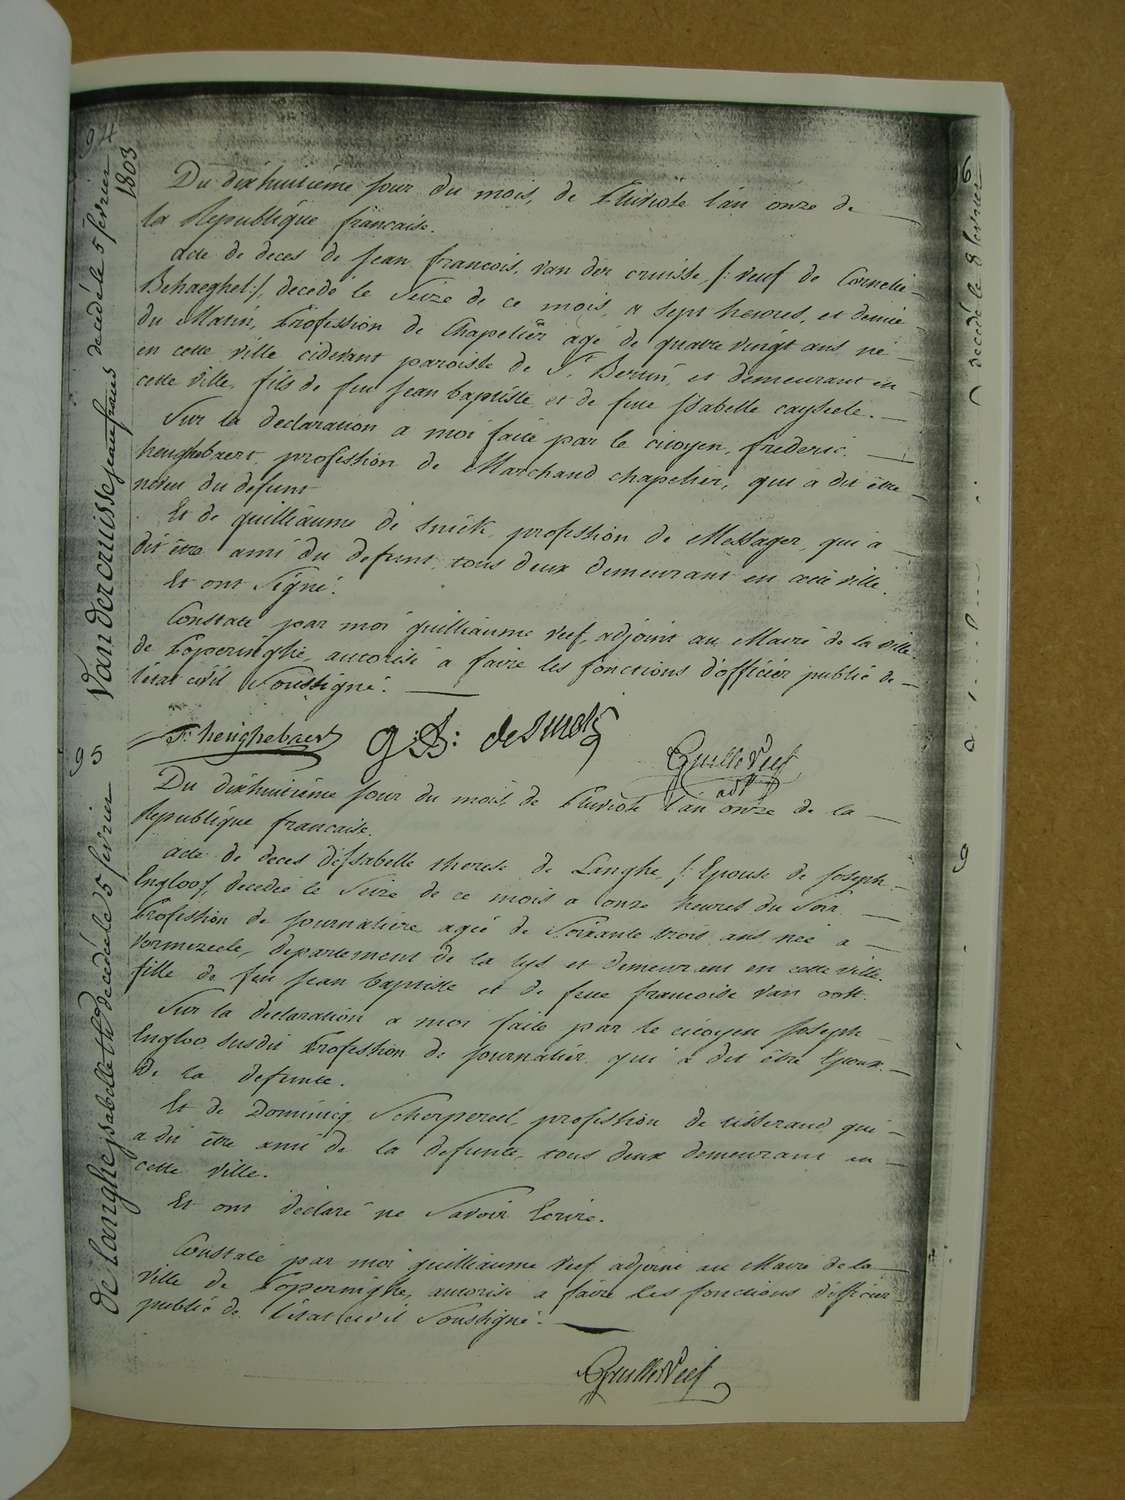 94
1803
Van der cruisse jean frans decedé le 5 fevrier
Du dixhuitiéme jour du mois de Pluviôse l'an onze de
la Republique française.
Acte de deces de Jean francois van der cruisse /: veuf de Cornelie
Behaeghel:/, decedé le Seize de ce mois, a sept heures, et demie
du Matin, Profession de Chapelier agé de quatre vingt ans, né
en cette ville cidevant paroisse de St. Bertin, et demeurant en
cette ville, fils de feu Jean baptiste et de feue Isabelle cayseele.
Sur la declaration a moi faite par le citoyen frederic
henghebaert, profession de Marchand chapelier, qui a dit être
neveu du defunt
Et de guilliaume de Smidt, profession de Messager, qui a
dit être ami du defunt, tous deux demeurant en cette ville.
Et ont Signé.
Constaté par moi guilliaume Veef, adjoint au Maire de la ville
de Poperinghe, autorisé a faire les fonctions d'officier public de
l'état civil Soussigné.
F: henghebaert g:B: de Smidt Guille Veef
adjt
95
de langhe isabelle th decedée le 5 fevrier
Du dixhuitiéme jour du mois de Pluviôse l'an onze de la
Republique francaise.
Acte de deces d'Isabelle therese de Langhe /: Epouse de Joseph
Engloo:/, decedée le Seize de ce mois a onze heures du Soir
Profession de journaliere, agée de Soixante trois ans, née a
Vormezeele, departement de la Lys et demeurant en cette ville.
fille de feu Jean baptiste et de feue francoise Van ooth.
Sur la declaration a moi faite par le citoyen Joseph
Engloo susdit Profession de journalier qui a dit être Epoux
de la defunte.
Et de Dominicq Scherpereel, profession de tisserand, qui
a dit être ami de la defunte, tous deux demeurant en
cette ville.
Et ont déclaré ne Savoir Ecrire.
Constaté par moi guilliaume Veef, adjoint au Maire de la
ville de Poperinghe, autorisé a faire les fonctions d'officier
public de l'état civil Soussigné.
Guille Veef
decedé le 8 fevrier